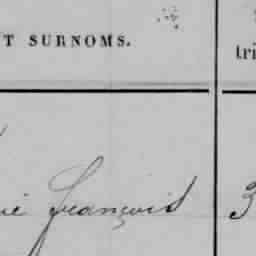 T SURNOMS.
tri
ié François 3